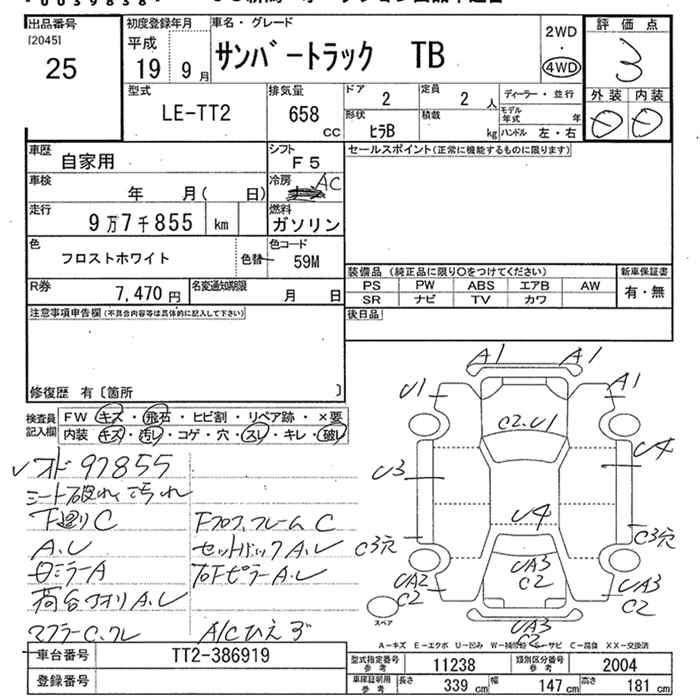 出品番号
[2045]
25
初度登録年月
平成
19 9月
車名・グレード
サンバートラック TB
2WD
・
4WD
評価点
3
外装 内装
型式
LE-TT2
排気量
658
CC
ドア
2
定員
2 人
形状
ヒラB
積載
kg
ディーラー・並行
モデル年式 年
ハンドル 左・右
車歴
自家用
シフト
F5
車検
年 月( 日)
冷房
AC
走行
9万7千855 km
燃料
ガソリン
色
フロストホワイト
色替
色コード
59M
R券
7,470円
名変通知期限
月 日
セールスポイント(正常に機能するものに限ります)
装備品(純正品に限り○をつけてください)
PS PW ABS エアB AW
SR ナビ TV カワ
新車保証書
有・無
後日品
注意事項申告欄(不具合内容等は具体的に記入して下さい)
修復歴 有〔箇所 〕
検査員記入欄
FW キズ・飛石・ヒビ割・リペア跡・×要
内装 キズ・汚レ・コゲ・穴・スレ・キレ・破レ
97855
シート破れ、汚れ
下廻りC
Fフロア、フレームC
A.U
セットバックA.U
右ミラーA
右FピラーA.U
荷台アオリA.U
マフラーC.クレ
A/Cひえず
A1
A1
U1
A1
C2.U1
U3
U4
U4
C3穴
C3穴
UA3
C2
UA2
C2
UA3
C2
UA3
C2
スペア
A－キズ E－エクボ U－凹み W－補修跡 S－サビ C－腐食 XX－交換済
車台番号
TT2-386919
登録番号
型式指定番号
参考
11238
類別区分番号
参考
2004
車庫証明用
参考
長さ 339cm 幅 147cm 高さ 181cm